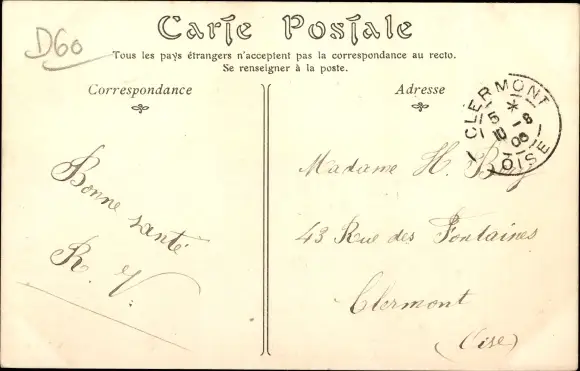 D60
Carte Postale
Tous les pays étrangers n'acceptent pas la correspondance au recto.
Se renseigner à la poste.
Correspondance
Adresse
CLERMONT
5 * 
10 - 6
06
OISE
Bonne santé
R. V.
Madame H.
43 Rue des Fontaines
Clermont
(Oise)